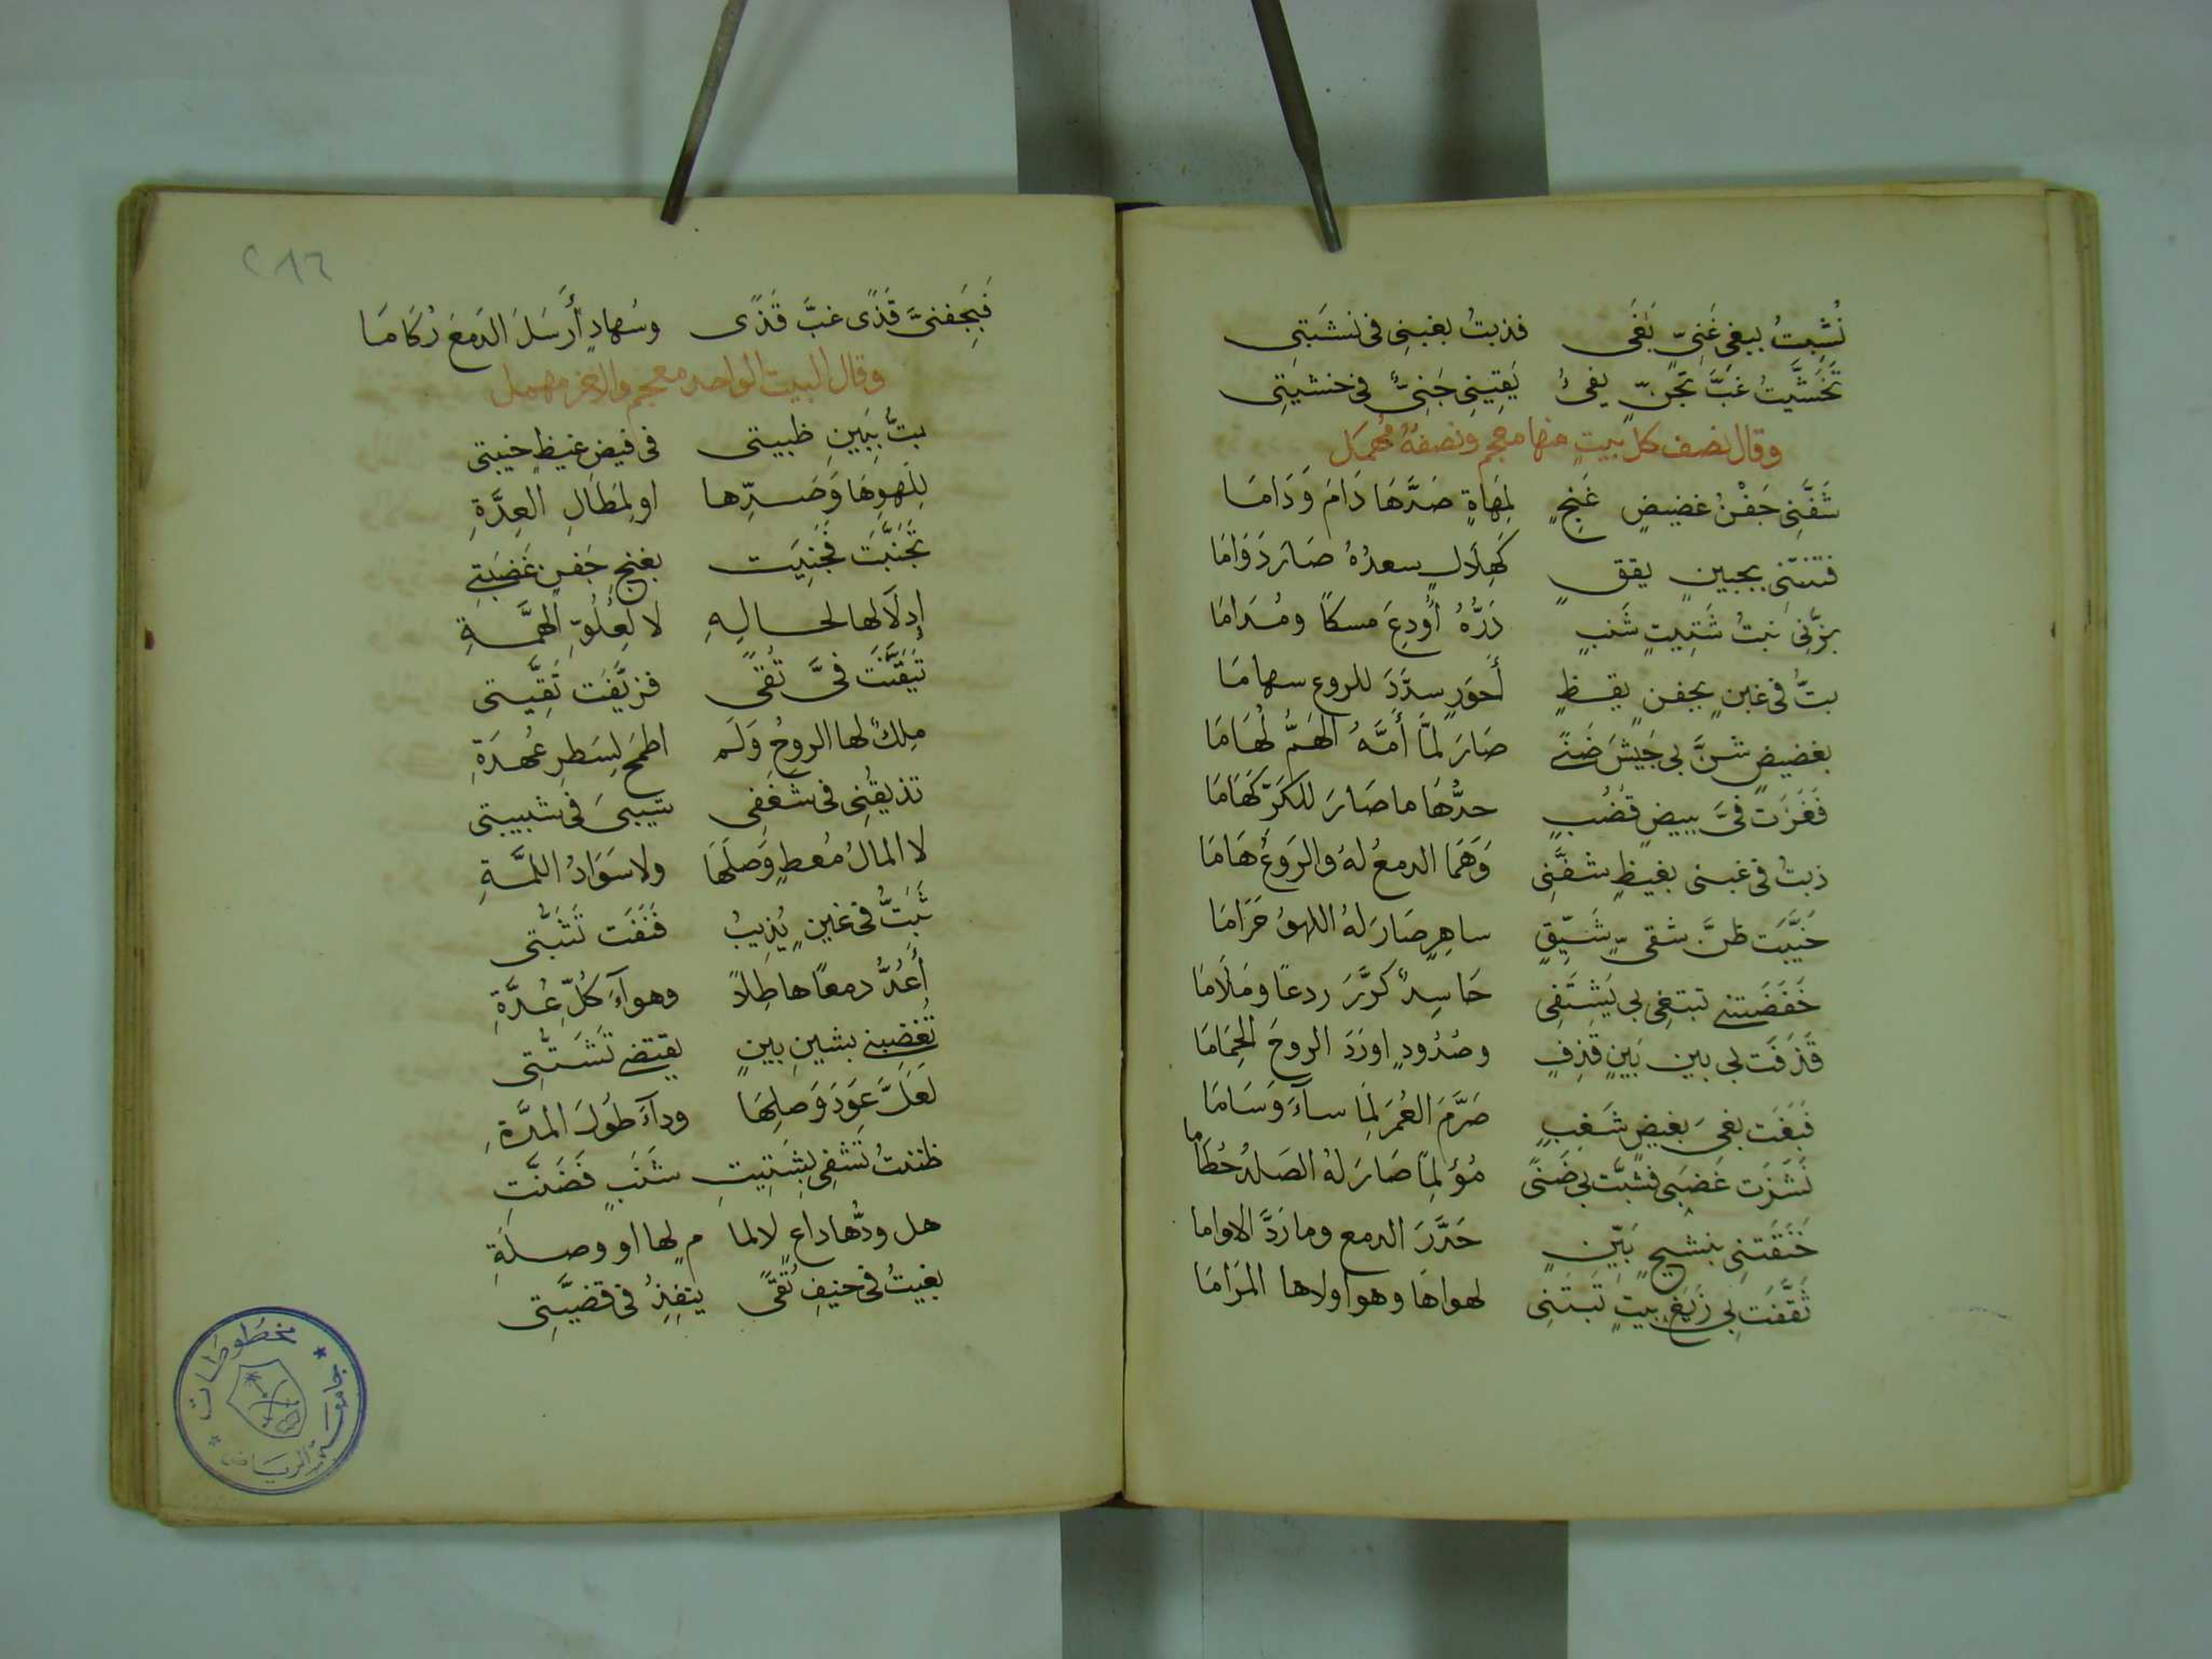 نُشِبتُ ببغيِ غَنِيّ بَغَى فذبتُ بغبنِى فى نَشبَتِى
تَخَشَّيتُ غبَّ تَجَنّ يفىُ يَقِيِنِى جَنِىٌّ فى خشيَتِى
وقال نصف كلّ بيتٍ منها معجم ونصفهُ مُهمَل
شَفَّنِى جَفْنُ غضيضٍ غَنِجٍ لِمَهاةٍ صَدَّهَا دَامَ وَدَامَا
فتنتنى بجبينٍ يققٍ كَهِلَالٍ سعدُهُ صَارَ دَوَامَا
بزّنِى نبتُ شَتِيتٍ شَنبٍ دَرُّهُ أُودِعَ مسكاً ومُدَامَا
بتُّ فى غبنٍ بجفنٍ يقظٍ أَحوَرٍ سدَّدَ للروعِ سهامَا
بغضيضٍ شنَّ بى جَيشَ ضَنًى صَارَ لمَّا أَمَّهُ الهَمُّ لُهَامَا
فَغَزَت فىَّ ببيضٍ قُضُبٍ حدُّهَا ما صَارَ للكَرّ كَهَامَا
ذبتُ فى غبنى بغيظٍ شفَّنِى وَهَمَا الدمعُ لهُ والرَوعُ هَامَا
خَيَّبَت ظنَّ شقىّ شَيِّقٍ ساهِرٍ صَارَ لهُ اللهوُ حَرَامَا
خَفَضَتنى تبتغِى بى يَشتَفِى حَاسِدٌ كرَّرَ ردعًا ومَلَامَا
قَذَفَت بى بين بَينٍ قذِفٍ وصُدُودٍ اورَدَ الروحَ الحِمَامَا
فَبَغَت بغىَ بغيضٍ شَغِبٍ صَرَّمَ العُمرَ لِمَا سآءَ وَسَامَا
نَشَزَت غَضبَى فشبَّت بى ضَنًى مُؤلِمًا صَارَ لهُ الصَلدُ حُطَامَا
خَنَقَتنِى بنشيجٍ بَيّنٍ حَدَّرَ الدمع وما رَدَّ الاواما
ثَقَّفَت بى زَيغَ بيتٍ تَبتَنِى لهواهَا وهو اولاها المَرَامَا
٢٨٦
فَبِجَفنىَّ قَذًى غبَّ قَذًى وسُهادٍ أَرسَلَ الدَمعَ رُكَامَا
وقال البيت الواحد معجم والاخر مهمل
بتُّ بِبَينِ ظبيتى فى فيضِ غيظِ خيبتى
لِلَهوِهَا وَصَدِّها او لِمَطَالِ العِدَّةِ
تجَنَّبَت فَجُنِيَت بغنجِ جَفنٍ غَضبَتِى
إدلَالها لحالِهِ لا لِعُلُوِّ الهمَّةِ
تَيَقَّنَت فىَّ تُقًى فزيَّفَت تَقِيّتى
مِلكٌ لها الروحُ وَلَم اطمَح لِسَطرِ عُهدَةِ
تذيقُنِى فى شَغَفِى شيبىَ فى شبيبتى
لا المالُ مُعطٍ وَصلَهَا ولا سَوَادُ اللمَّةِ
ثَبَتُّ فى غبنٍ يُذِيبُ فَنَفَت تَثَبُّتى
أَعُدُّ دمعًا هاطِلاً وهوآءَ كُلِّ عُدَّةِ
تُغضِبنى بشَينِ بينٍ يقتضى تَشَتُّتِى
لَعَلَّ عَودَ وَصلِهَا ودآءَ طُولَ المدَّةِ
ظننتُ تشفِى بِشَتِيتِ شَنَبٍ فَضَنَّتِ
هل ودُّها داعٍ لالما مٍ لها او وصلَةِ
بغيتُ فى حنيفِ تُقًى ينفِذُ فى قضيَّتِى
جامعة الرياض
مخطوطات